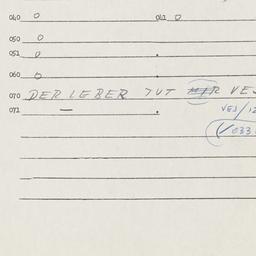 040 0 041 0
050 0
051 0
060 0
070 DER LEBER TUT MIR VES
071 —
VES/12
033